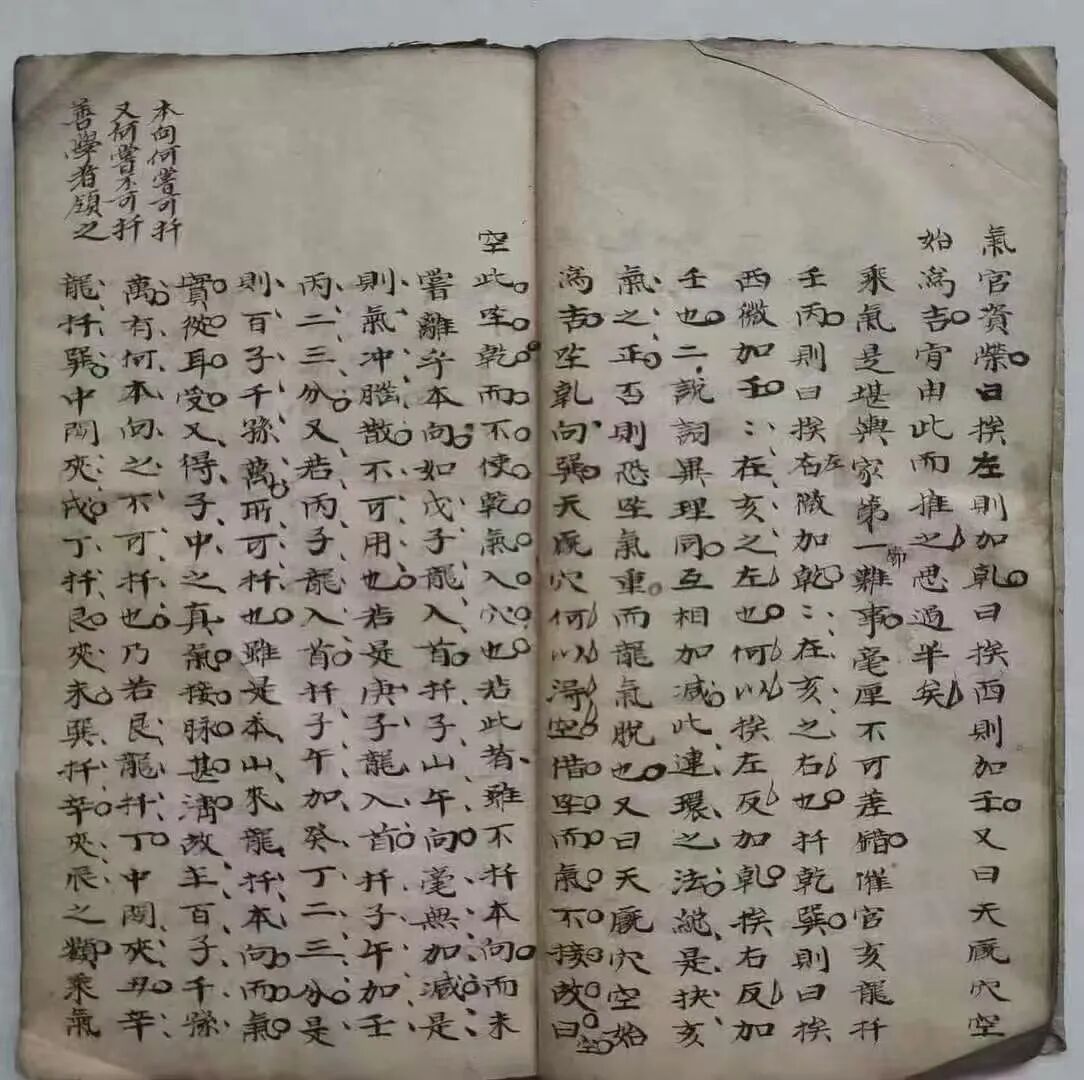 氣官資榮曰挨左則加乾曰挨西則加壬又曰天廐穴空
始為吉由此而推之思過半矣
乘氣是堪輿家第一節難事毫厘不可差錯催官亥龍扦
壬丙則曰挨右左加乾:在亥之右也扦乾巽則曰挨
西微加壬:在亥之左也何以挨左反加乾挨右反加
壬也二說詞異理同互相加減此連環之法總是扶亥
氣之正否則恐坐氣重而龍氣脫也又曰天廐穴空始
為吉坐乾向巽天廐穴何以淂空借坐而氣不接故曰空
空此坐乾而不使乾氣入穴也若此者雖不扦本向而未
嘗離乎本向如戊子龍入首扦子山午向毫無加減是
則氣冲腦散不可用也若是庚子龍入首扦子午加壬
丙二三分又若丙子龍入首扦子午加癸丁二三分是
則百子千孫萬所可扦也雖是本山來龍扦本向而氣
實從耳受又得子中之真氣接脉甚清故主百子千孫
本向何嘗可扦
又何嘗不可扦
善學者領之
萬有何本向之不可扦也乃若艮龍扦丁中間夾丑辛
龍扦巽中間夾戌丁扦艮夾未巽扦辛夾辰之類乘氣